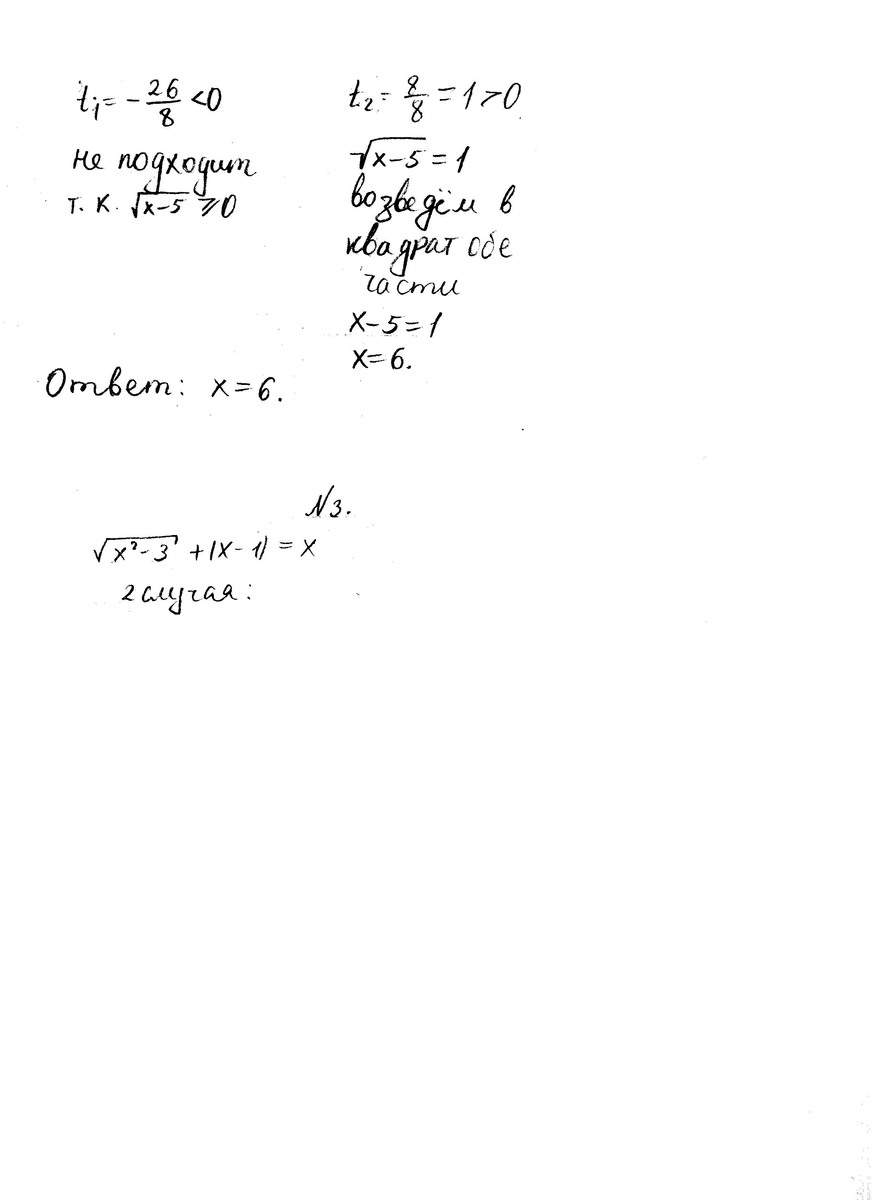 t₁ = -26/8 < 0
не подходит
т. к. √x-5 ⩾ 0
t₂ = 8/8 = 1 > 0
√x-5 = 1
возведём в
квадрат обе
части
x-5=1
x=6.
Ответ: x=6.
N3.
√x²-3 + |x-1| = x
2 случая: